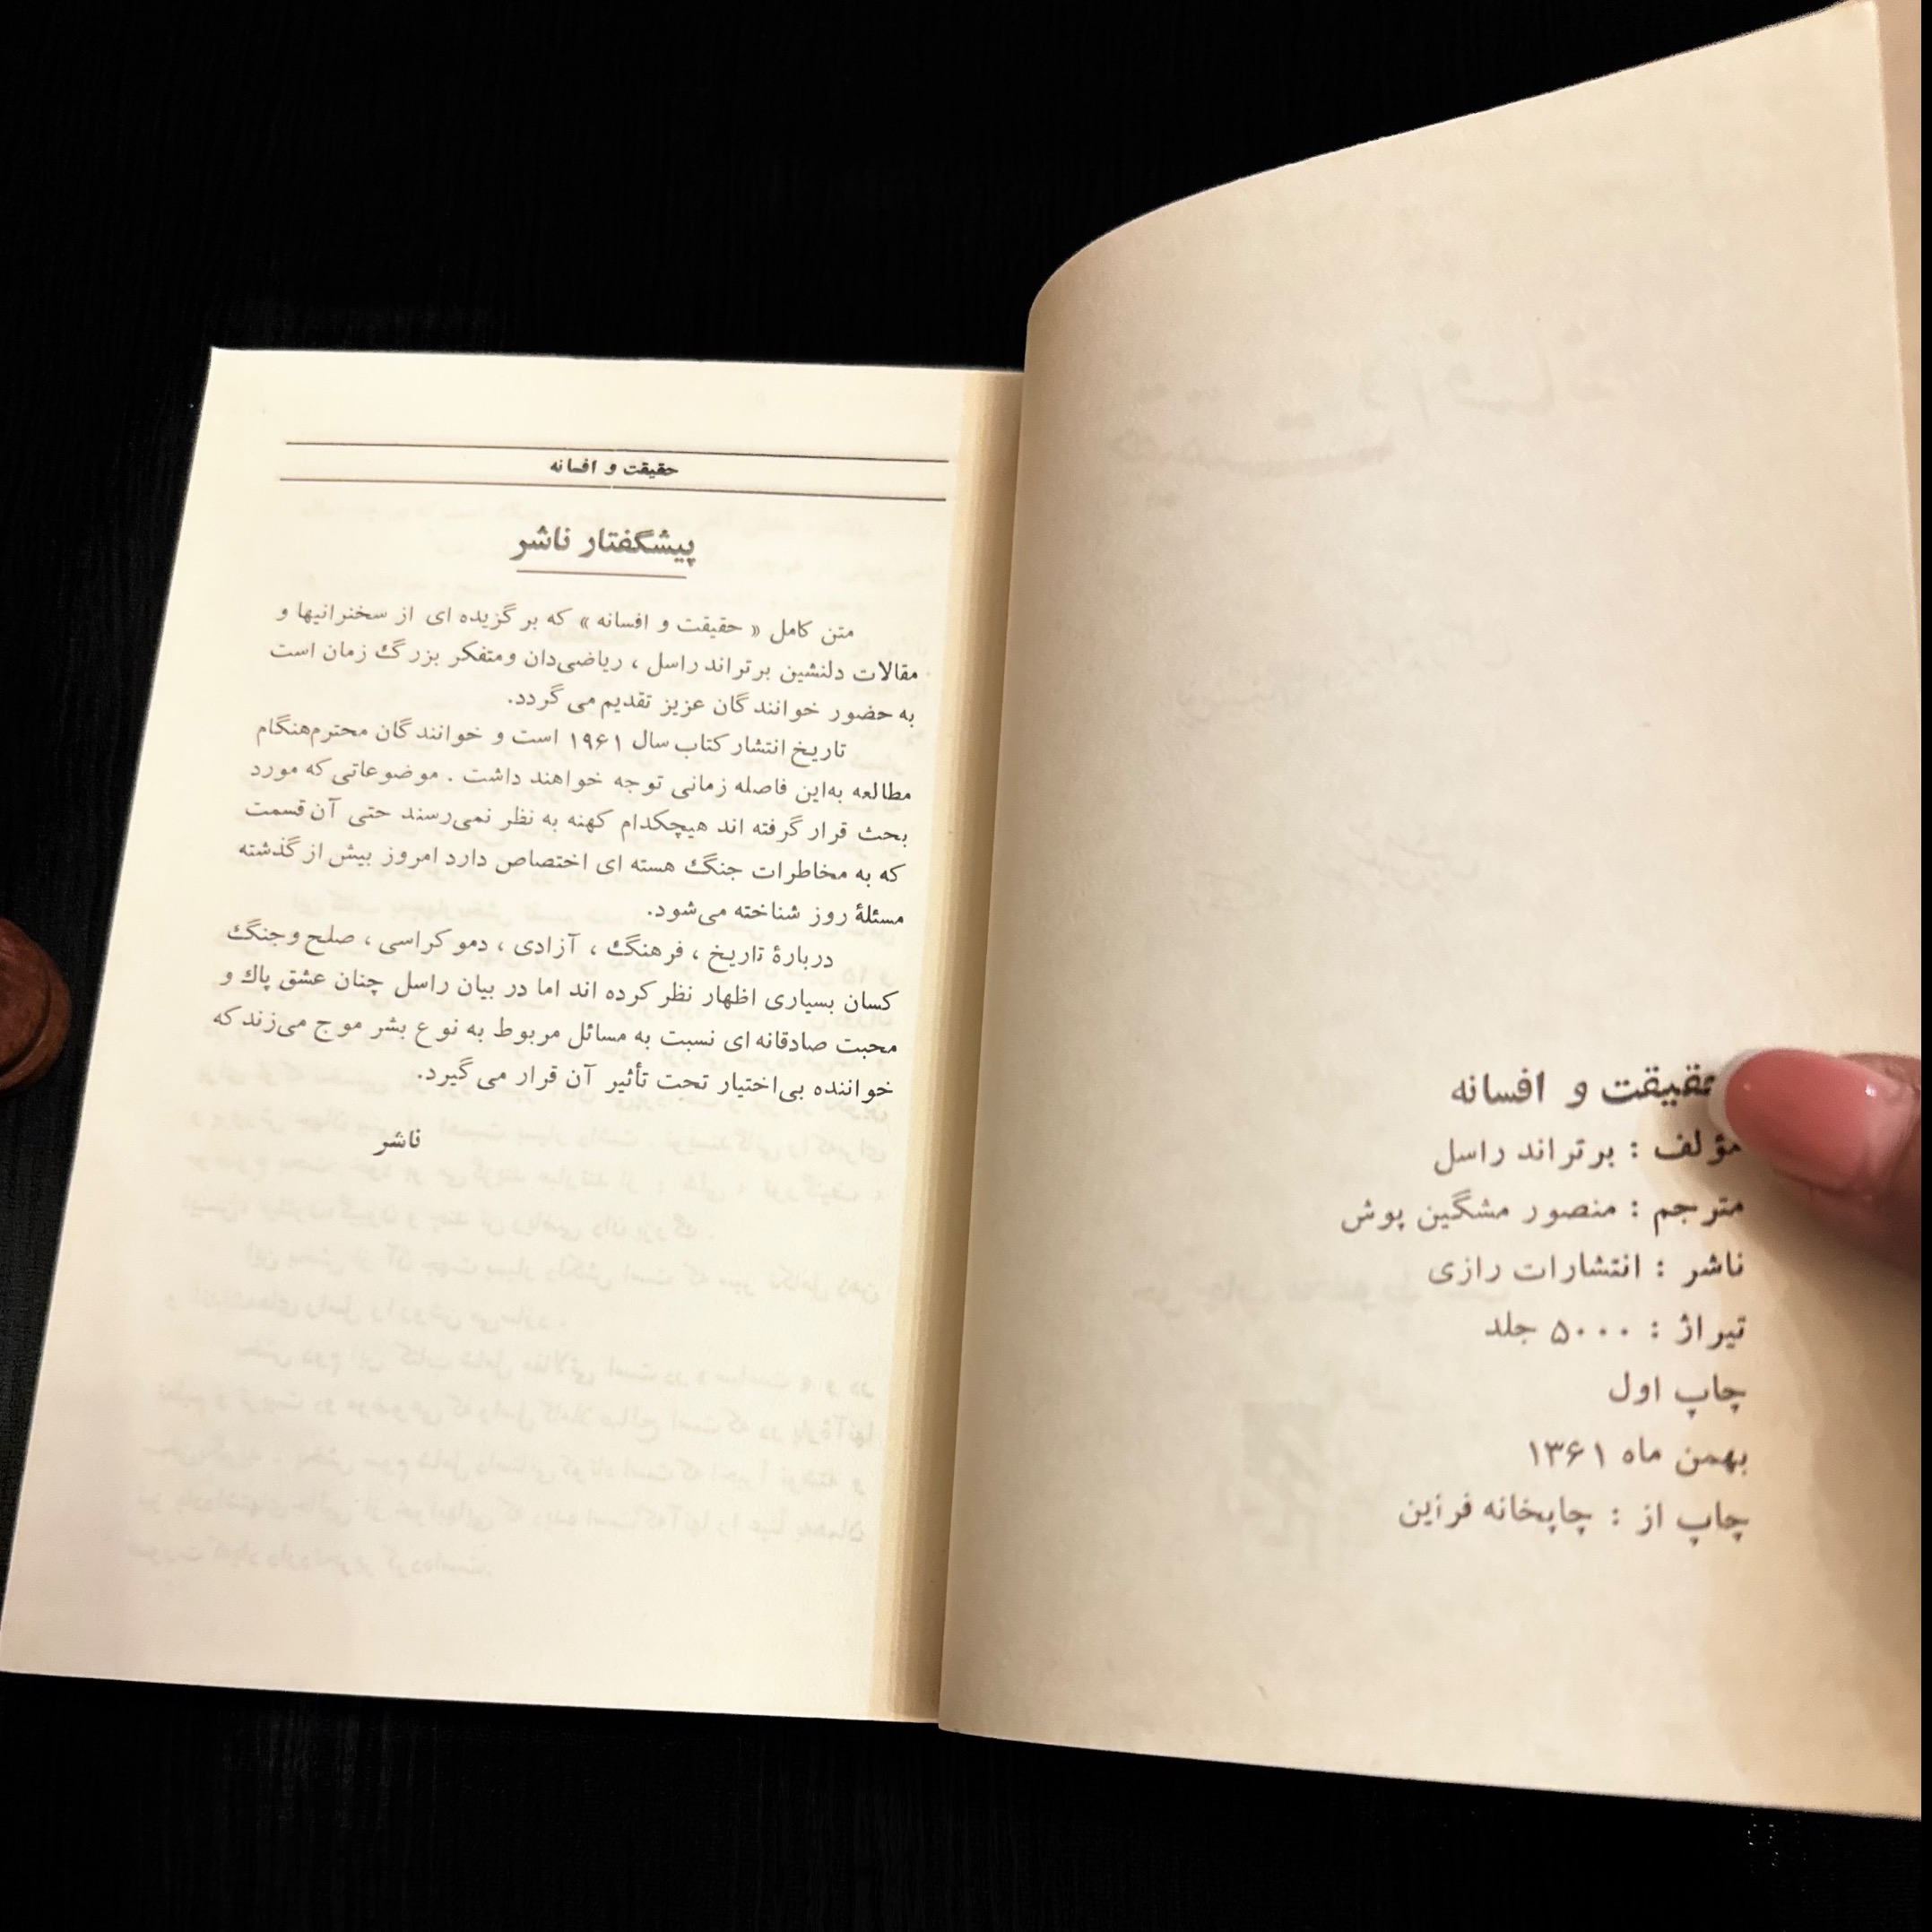 حقیقت و افسانه
مؤلف : برتراند راسل
مترجم : منصور مشگین پوش
ناشر : انتشارات رازی
تیراژ : ۵۰۰۰ جلد
چاپ اول
بهمن ماه ۱۳۶۱
چاپ از : چاپخانه فرزین
حقیقت و افسانه
پیشگفتار ناشر
متن کامل « حقیقت و افسانه » که برگزیده ای از سخنرانیها و
مقالات دلنشین برتراند راسل ، ریاضی‌دان ومتفکر بزرگ زمان است
به حضور خوانندگان عزیز تقدیم می گردد.
تاریخ انتشار کتاب سال ۱۹۶۱ است و خوانندگان محترم‌هنگام
مطالعه به‌این فاصله زمانی توجه خواهند داشت . موضوعاتی که مورد
بحث قرار گرفته اند هیچکدام کهنه به نظر نمی‌رسند حتی آن قسمت
که به مخاطرات جنگ هسته ای اختصاص دارد امروز بیش از گذشته
مسئلۀ روز شناخته می‌شود.
دربارۀ تاریخ ، فرهنگ ، آزادی ، دموکراسی ، صلح وجنگ
کسان بسیاری اظهار نظر کرده اند اما در بیان راسل چنان عشق پاك و
محبت صادقانه ای نسبت به مسائل مربوط به نوع بشر موج می‌زند که
خواننده بی‌اختیار تحت تأثیر آن قرار می گیرد.
ناشر